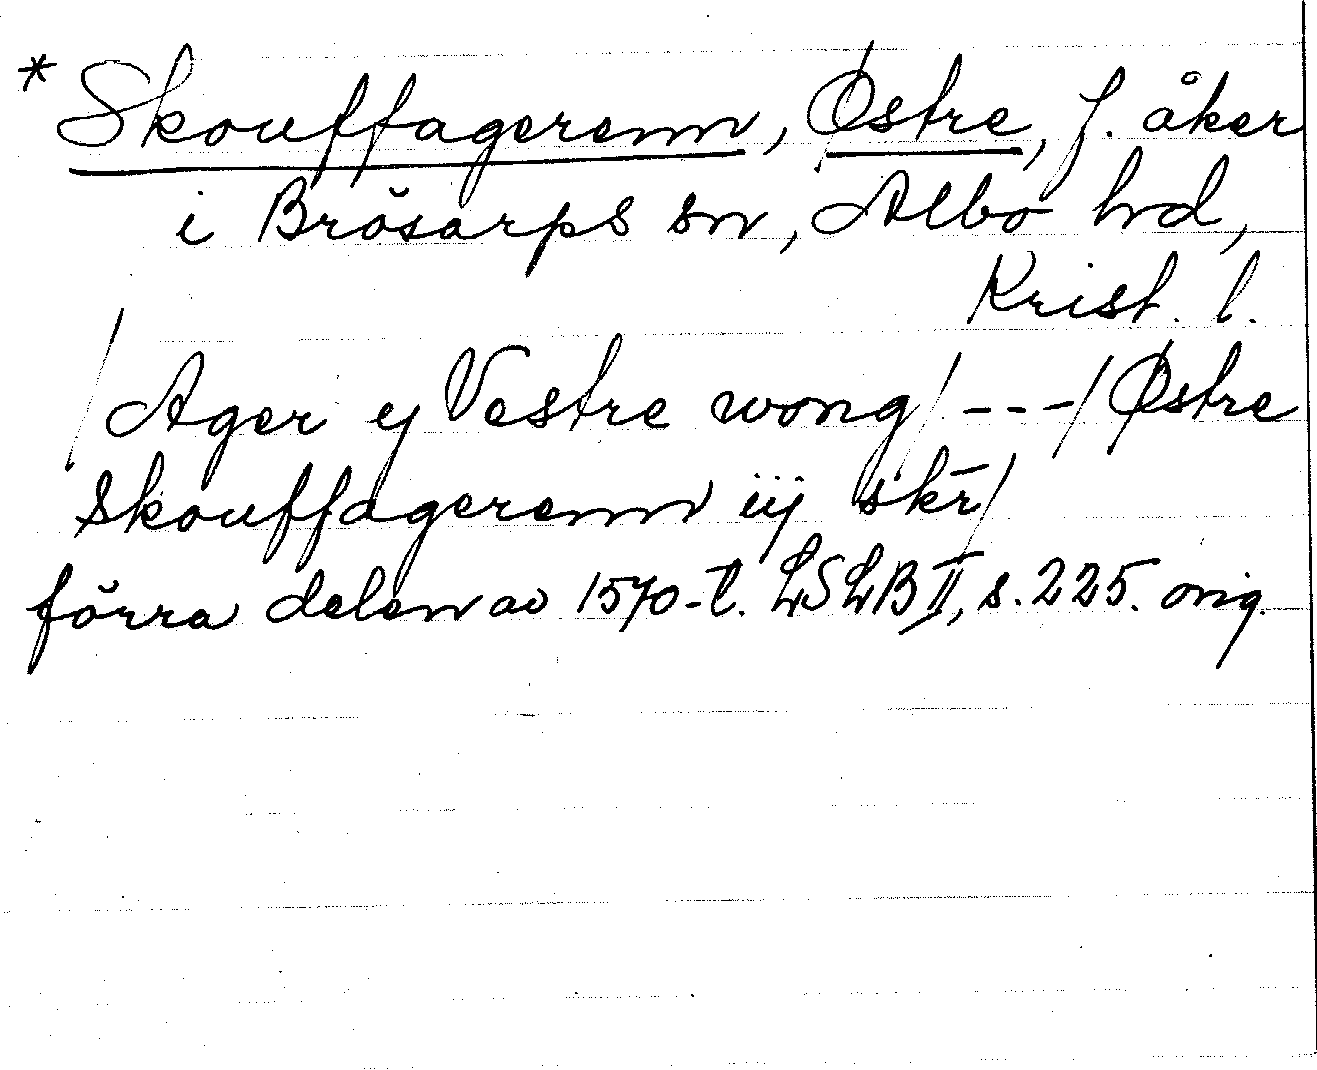 * Skouffagerenn, Østre, f. åker
i Brösarps sn, Albo hd,
Krist. l.
/Ager y Vestre wong/---/Østre
Skouffagerenn iij skr̄/
förra delen av 1570-t. LSLB II, s. 225. orig.